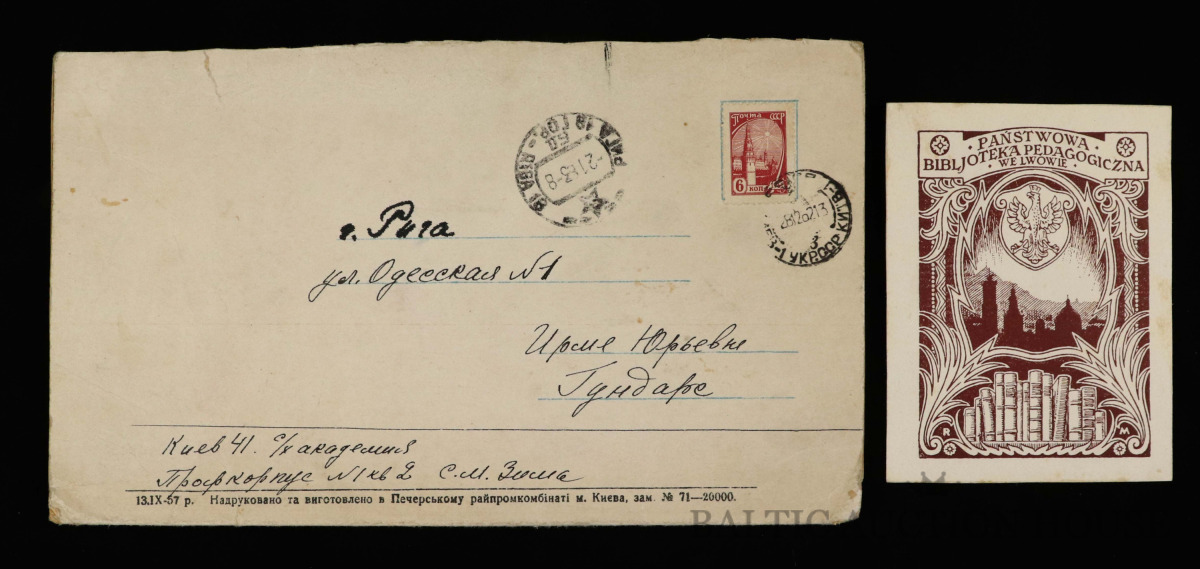 Почта СССР
6 коп
РИГА 19 ГОР.
ОД
-2 1 63-8
RIGA
281262 13
УКР.ССР КИЇВ-
г. Рига
ул. Одесская N1
Ирме Юрьевне
Гундарс
Киев 41. с/х академия
Профкорпус N1 кв 2 С.М. Зима
13.IX-57 р. Надруковано та виготовлено в Печерському райпромкомбінаті м. Києва, зам. № 71—20000.
PAŃSTWOWA
BIBLJOTEKA PEDAGOGICZNA
WE LWOWIE
R M
BALTIC AUCTION HOUSE